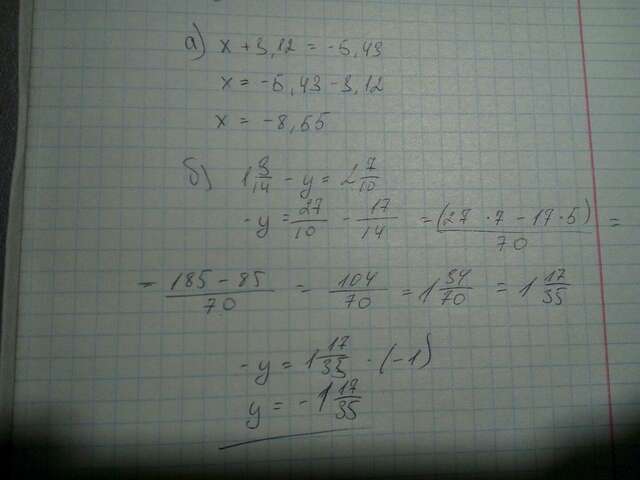 а) x + 3,12 = -5,43
x = -5,43 - 3,12
x = -8,55
б) 1 3/14 - y = 2 7/10
-y = 27/10 - 17/14 = (27 · 7 - 17 · 5)/70 =
= 185 - 85/70 = 104/70 = 1 34/70 = 1 17/35
-y = 1 17/35 · (-1)
y = -1 17/35